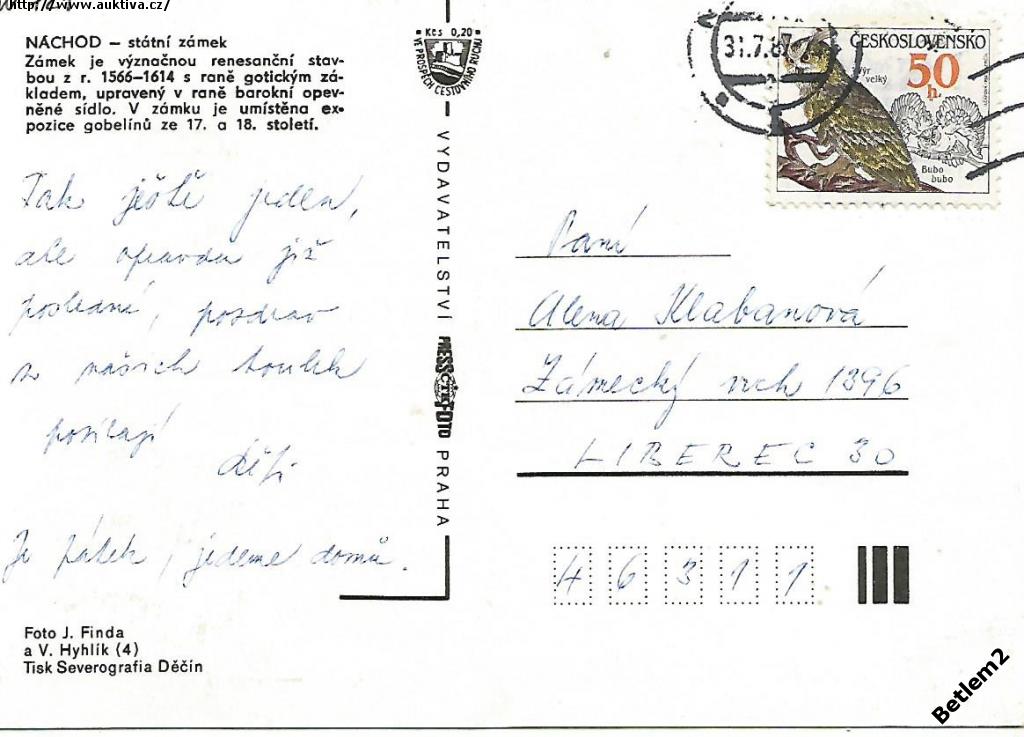 http://www.auktiva.cz/
NÁCHOD – státní zámek
Zámek je význačnou renesanční stav-
bou z r. 1566–1614 s raně gotickým zá-
kladem, upravený v raně barokní opev-
něné sídlo. V zámku je umístěna ex-
pozice gobelínů ze 17. a 18. století.
Tak ještě jeden,
ale opravdu již
poslední, pozdrav
z našich toulek
posílají
děti
Je pátek, jedeme domů.
Foto J. Finda
a V. Hyhlík (4)
Tisk Severografia Děčín
Kčs 0,20
VE PROSPĚCH CESTOVNÍHO RUCHU
VYDAVATELSTVÍ PRESSFOTO PRAHA
31.7.87
ČESKOSLOVENSKO
Výr
velký
50
h.
Bubo
bubo
Paní
Alena Klabanová
Zámecký vrch 1396
LIBEREC 30
46311
Betlem2